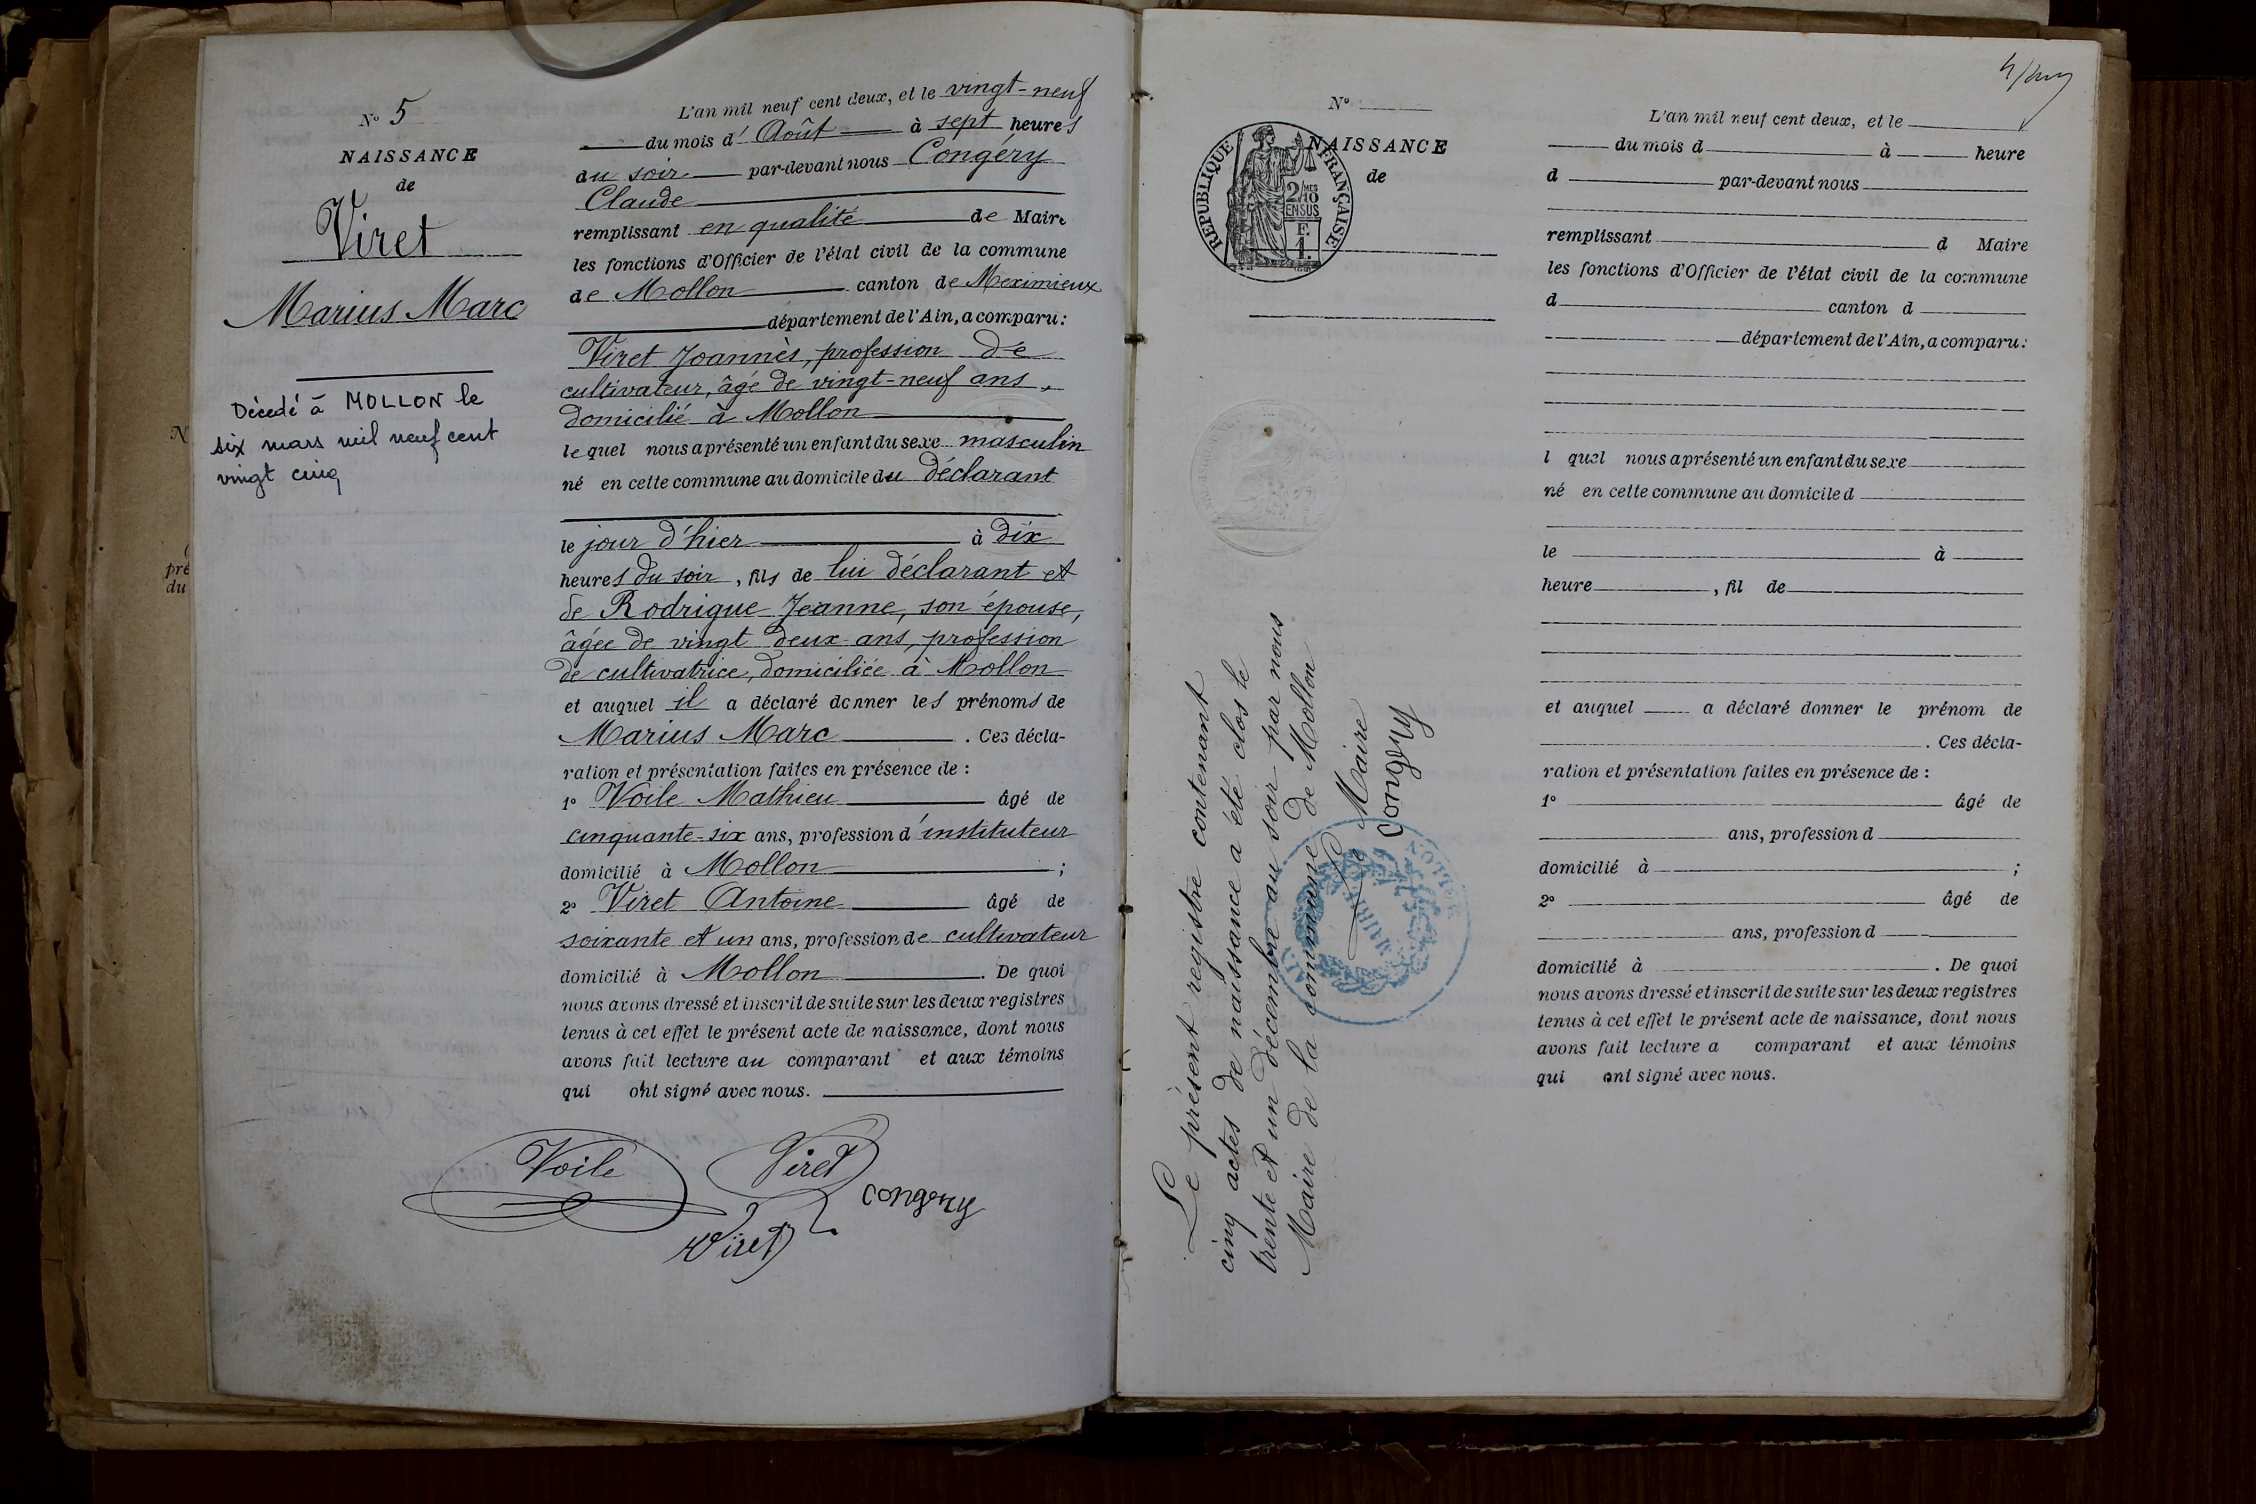 N° 5
NAISSANCE
de
Viret
Marius Marc
Décedé à MOLLON le
six mars mil neuf cent
vingt cinq
L'an mil neuf cent deux, et le vingt-neuf
du mois d'Août à sept heures
du soir par-devant nous Congéry
Claude
remplissant en qualité de Maire
les fonctions d'Officier de l'état civil de la commune
de Mollon canton de Meximieux
département de l'Ain, a comparu:
Viret Joannès, profession de
cultivateur, âgé de vingt-neuf ans,
domicilié à Mollon
lequel nous a présenté un enfant du sexe masculin
né en cette commune au domicile du déclarant
le jour d'hier à dix
heures du soir, fils de lui déclarant et
de Rodrigue Jeanne, son épouse,
âgée de vingt deux ans, profession
de cultivatrice, domiciliée à Mollon
et auquel il a déclaré donner les prénoms de
Marius Marc. Ces décla-
ration et présentation faites en présence de :
1° Voile Mathieu âgé de
cinquante-six ans, profession d'instituteur
domicilié à Mollon ;
2° Viret Antoine âgé de
soixante et un ans, profession de cultivateur
domicilié à Mollon. De quoi
nous avons dressé et inscrit de suite sur les deux registres
tenus à cet effet le présent acte de naissance, dont nous
avons fait lecture au comparant et aux témoins
qui ont signé avec nous.
Voile Viret
Congéry
Viret
N
pré
du
N°
NAISSANCE
de
RÉPUBLIQUE FRANÇAISE
2/MES
10
EN SUS
F.
1.
Le présent registre contenant
cinq actes de naissance a été clos le
trente et un décembre au soir par nous
Maire de la commune de Mollon
Le Maire
Congéry
MAIRIE
MOLLON
AIN
L'an mil neuf cent deux, et le
du mois d à heure
d par-devant nous
remplissant d Maire
les fonctions d'Officier de l'état civil de la commune
d canton d
département de l'Ain, a comparu:
l quel nous a présenté un enfant du sexe
né en cette commune au domicile d
le à
heure , fil de
et auquel a déclaré donner le prénom de
. Ces décla-
ration et présentation faites en présence de :
1° âgé de
ans, profession d
domicilié à ;
2° âgé de
ans, profession d
domicilié à . De quoi
nous avons dressé et inscrit de suite sur les deux registres
tenus à cet effet le présent acte de naissance, dont nous
avons fait lecture a comparant et aux témoins
qui ont signé avec nous.